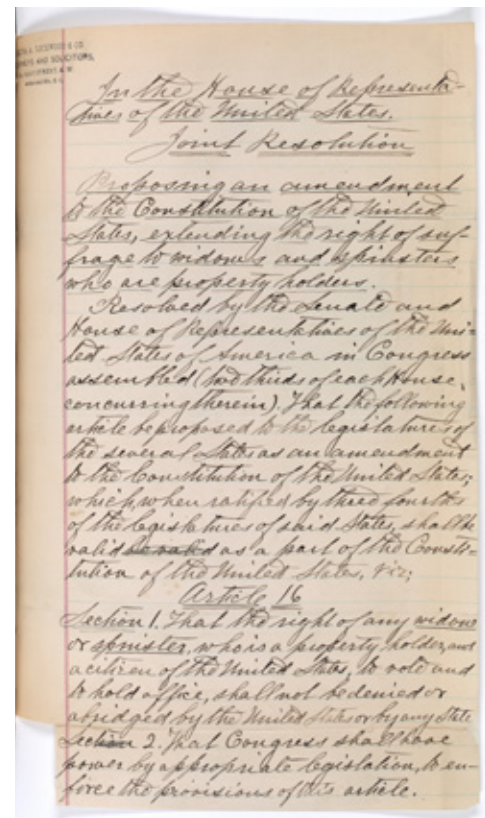 & CO.
AND SOLICITORS,
In the House of Representa-
tives of the United States.
Joint Resolution
Proposing an amendment
to the Constitution of the United
States, extending the right of suf-
frage to widows and spinsters
who are property holders.
Resolved by the Senate and
House of Representatives of the Uni-
ted States of America in Congress
assembled (two thirds of each House,
concurring therein). That the following
article be proposed to the legislatures of
the several States as an amendment
to the Constitution of the United States;
which, when ratified by three fourths
of the legislatures of said States, shall be
valid as a part of the Consti-
tution of the United States, viz;
Article 16
Section 1. That the right of any widow
or spinster, who is a property holder, and
a citizen of the United States, to vote and
to hold office, shall not be denied or
abridged by the United States or by any State
Section 2. That Congress shall have
power by appropriate legislation, to en-
force the provisions of this article.